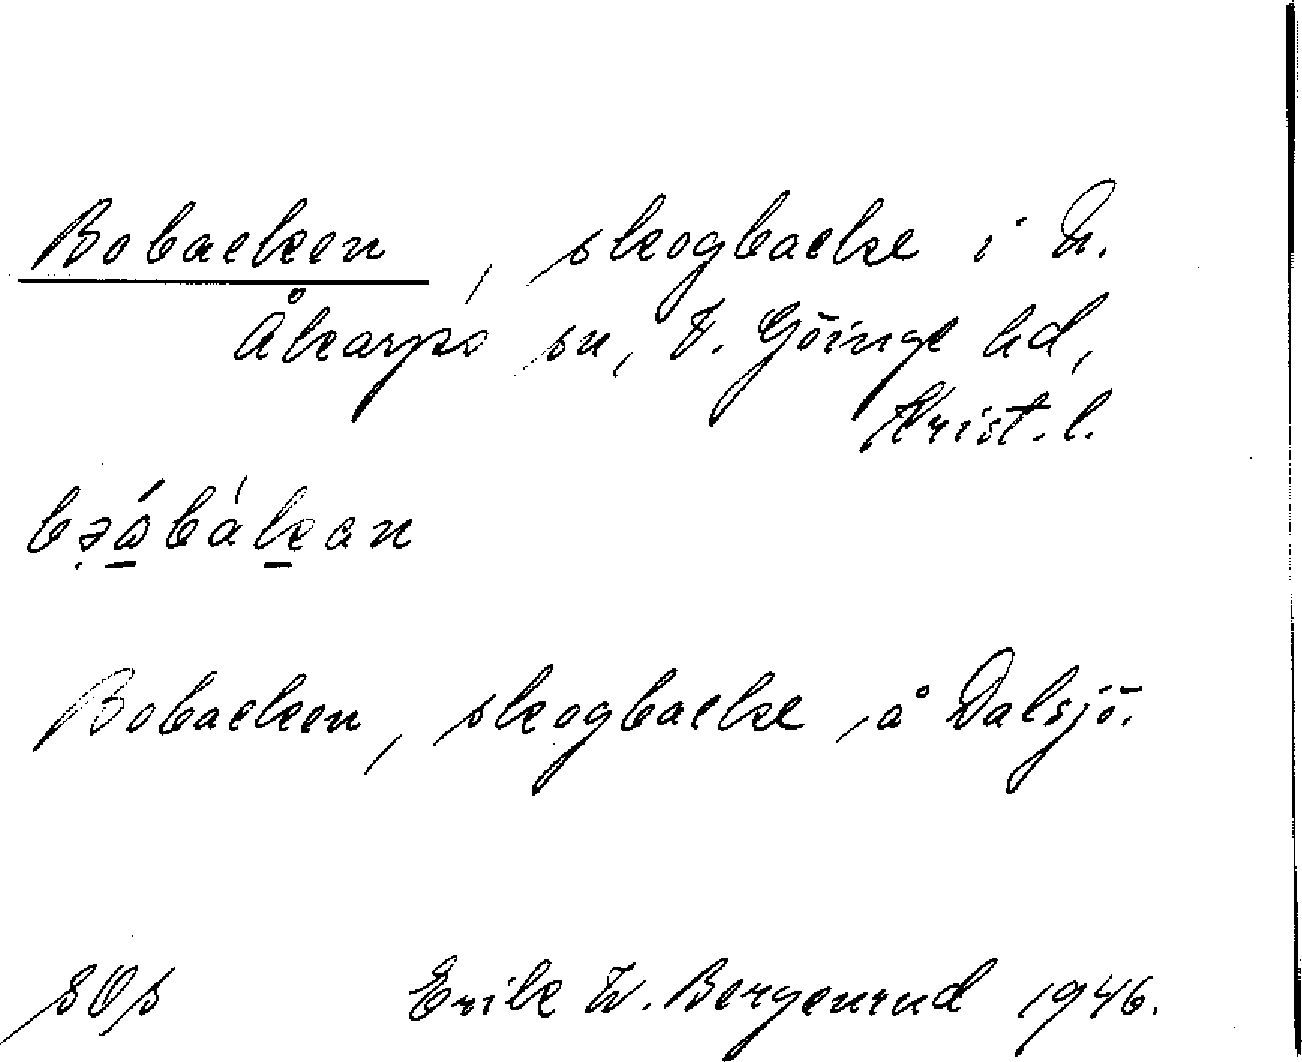 Bobacken, skogbacke i N.
Åkarps sn, V. Göinge hd,
Krist. l.
Bobacken, skogbacke å Dalsjö.
SOS Erik W. Bergenrud 1946.